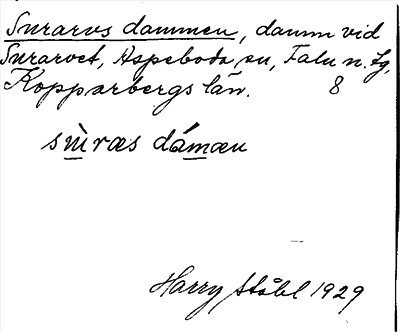 Snrarvs dammen, damm vid
Snrarvet, Aspeboda sn, Falu n. tg,
Kopparbergs län. 8
dámæn
Harry Ståhl 1929